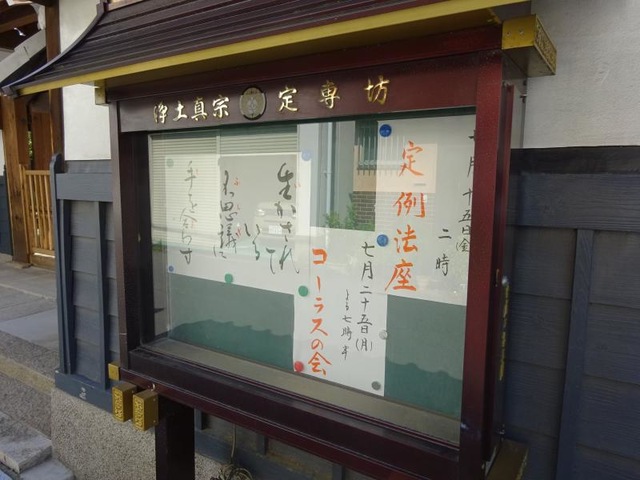 浄土真宗 定専坊
七月十五日(金)
二時
定例法座
七月二十五日(月)
よる七時半
コーラスの会
生かされて
いる
不思議に
手を合わす